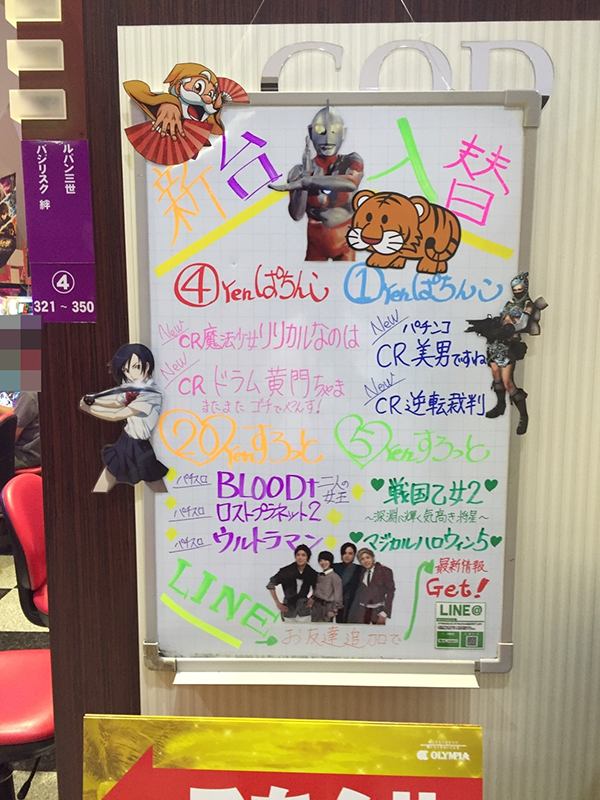 GOD
新台入替
ルパン三世
バジリスク 絆
④
321～350
④Yenぱちんこ
①Yenぱちんこ
New
CR魔法少女リリカルなのは
New
CRドラム黄門ちゃま
またまたゴチでやんす!
New
パチンコ
CR美男ですね
New
CR逆転裁判
⑳Yenすろっと
⑤Yenすろっと
パチスロ BLOOD+二人の女王
パチスロ ロストプラネット2
パチスロ ウルトラマン
♥戦国乙女2♥
～深淵に輝く気高き将星～
♥マジカルハロウィン5♥
LINE
お友達追加で
最新情報
Get!
LINE@
OLYMPIA